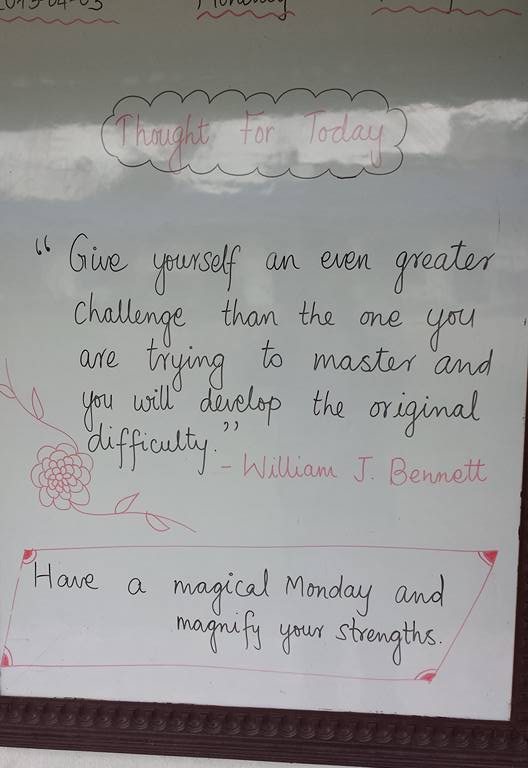 Monday
Thought For Today
“ Give yourself an even greater
challenge than the one you
are trying to master and
you will develop the original
difficulty.”
- William J. Bennett
Have a magical Monday and
magnify your strengths.